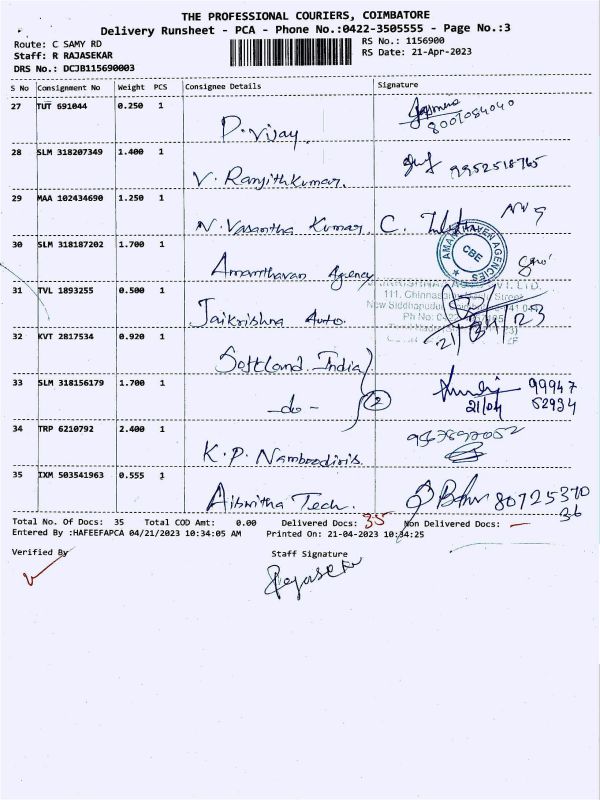 THE PROFESSIONAL COURIERS, COIMBATORE
Delivery Runsheet - PCA - Phone No.:0422-3505555 - Page No.:3
Route: C SAMY RD
RS No.: 1156900
Staff: R RAJASEKAR
RS Date: 21-Apr-2023
DRS No.: DCJB115690003
S No Consignment No Weight PCS Consignee Details Signature
27 TUT 691044 0.250 1
P. Vijay.
28 SLM 318207349 1.400 1
V. Ranjithkumar. 9952518765
29 MAA 102434690 1.250 1
N. Vasantha Kumar C.
30 SLM 318187202 1.700 1
Amarnthavan Agency
AMARNTHAVER AGENCIES
CBE
31 TVL 1893255 0.500 1
Jaikrishna Auto.
111, Chinnasamy Street
New Siddhapudur
Ph No: 0422
21/04/23
32 KVT 2817534 0.920 1
Softland India
33 SLM 318156179 1.700 1
- do - 2
21/04
99947
52934
34 TRP 6210792 2.400 1
K. P. Namboodiris.
35 IXM 503541963 0.555 1
Aibmitha Tech. 80725370
36
Total No. Of Docs: 35 Total COD Amt: 0.00 Delivered Docs: 35 Non Delivered Docs: -
Entered By :HAFEEFAPCA 04/21/2023 10:34:05 AM Printed On: 21-04-2023 10:34:25
Verified By Staff Signature
Rajasekar